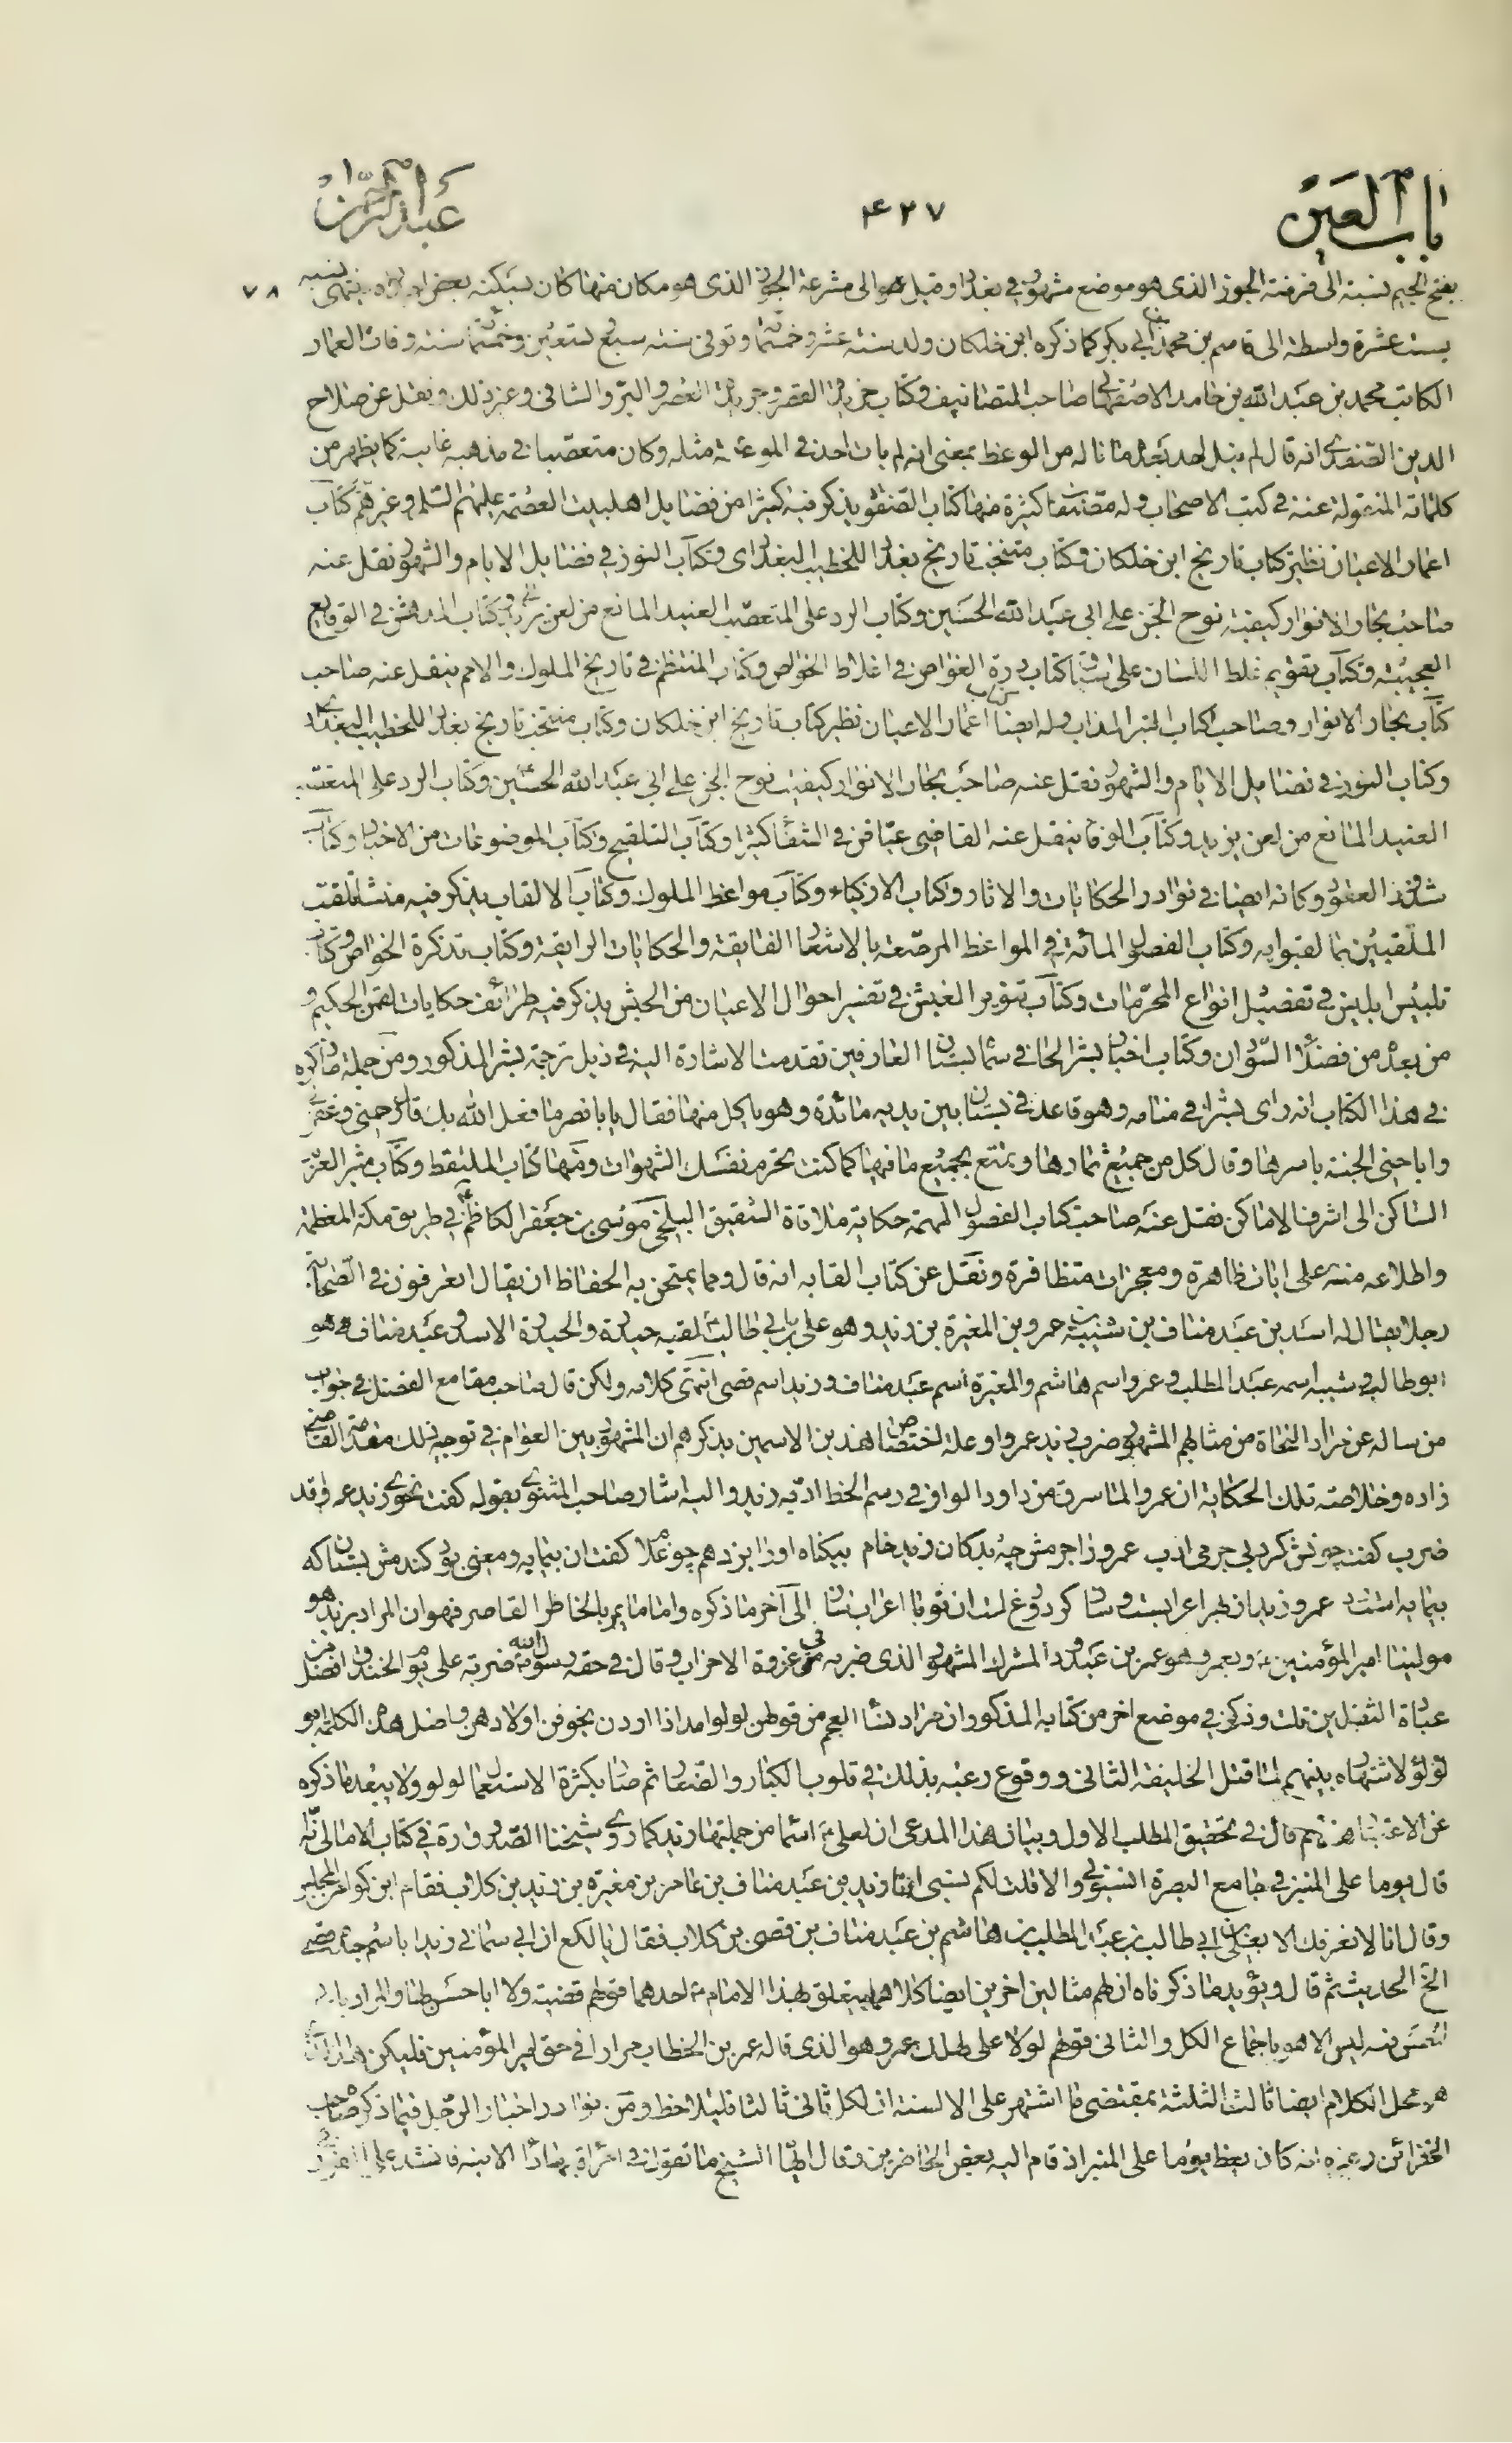 باب العين
۴۲۷
عبد الرحمن
۷۸
بفتح الجيم نسبة الى فرضة الجوز الذى هو موضع مشهور فى بغداد وقيل هو الى مشرعة الجوز الذى هو مكان منها كان يسكنه بعض ينتهى نسبه
بست عشرة واسطة الى قاسم بن محمد بن ابى بكر كما ذكره ابن خلكان ولد سنة عشر وخمسماة وتوفى سنة سبع وتسعين وخمسماة سنة وفات العماد
الكاتب محمد بن عبد الله بن حامد الاصفهانى صاحب التصانيف وكتاب خريدة القصر وجريدة العصر والبرق الشامى وغير ذلك ونقل عن صلاح
الدين الصفدى انه قال لم ينل احد بعده ما ناله من الوعظ بمعنى انه لم يات احد فى الموعظة مثله وكان متعصبا فى مذهبه غايته كما يظهر من
كلماته المنقولة عنه فى كتب الاصحاب وله مصنفات كثيرة منها كتاب الصفوة يذكر فيه كثيرا من فضايل اهل بيت العصمة عليهم السلم وغيرهم وكتاب
اعمار الاعيان نظير كتاب تاريخ ابن خلكان وكتاب منتخب تاريخ بغداد للخطيب البغدادى وكتاب النور فى فضايل الايام والشهور نقل عنه
صاحب بحار الانوار كيفية نوح الجن على ابى عبد الله الحسين وكتاب الرد على المتعصب العنيد المانع من لعن يزيد وكتاب المدهش فى الوقايع
العجيبة وكتاب تقويم غلط اللسان على سياق كتاب درة الغواص فى اغلاط الخواص وكتاب المنتظم فى تاريخ الملوك والامم ينقل عنه صاحب
كتاب بحار الانوار وصاحب كتاب المذاب وله ايضا كتاب اعمار الاعيان نظير كتاب تاريخ ابن خلكان وكتاب منتخب تاريخ بغداد للخطيب البغدادى
وكتاب النور فى فضايل الايام والشهور نقل عنه صاحب بحار الانوار كيفية نوح الجن على ابى عبد الله الحسين وكتاب الرد على المتعصب
العنيد المانع من لعن يزيد وكتاب الوفا ينقل عنه القاضى عياض فى الشفا كثيرا وكتاب التلقيح وكتاب الموضوعات من الاخبار وكتاب
شذور العقود وكانه ايضا فى نوادر الحكايات والاثار وكتاب الاذكياء وكتاب مواعظ الملوك وكتاب الالقاب يذكر فيه منشا تلقب
الملقبين بما لقبوا به وكتاب الفصول المائة فى المواعظ المرصعة بالاشعار الفايقة والحكايات الرايقة وكتاب تذكرة الخواص وكتاب
تلبيس ابليس فى تفصيل انواع المحرمات وكتاب تنوير الغبش فى تفسير احوال الاعيان من الحبش يذكر فيه طرائف حكايات لقمن الحكيم و
من بعده من فضلاء السودان وكتاب اخبار بشر الحافى سماه بستان العارفين تقدمت الاشارة اليه فى ذيل ترجمة بشر المذكور ومن جملة ما ذكره
فى هذا الكتاب انه راى بشرا فى منامه وهو قاعد فى بستان بين يديه مائدة وهو ياكل منها فقال يابا نصر ما فعل الله بك قال رحمنى وغفر لى
واباحنى الجنة باسرها وقال كل من جميع ثمارها وتمتع بجميع ما فيها كما كنت تحرم نفسك الشهوات ومنها كتاب الملتقط وكتاب مثير العزم
الساكن الى اشرف الاماكن نقل عنه صاحب كتاب الفصول المهمة حكاية ملاقاة الشقيق البلخى موسى بن جعفر الكاظم فى طريق مكة المعظمة
واطلاعه منه على ايات ظاهرة ومعجزات متظافرة ونقل عن كتاب القابه انه قال ومما يمتحن به الحفاظ ان يقال اتعرفون فى الصحابة
رجلا يقال له اسد بن عبد مناف بن شيبة بن عمرو بن المغيرة بن زيد وهو على بن ابى طالب لقبه حيدرة والحيدرة الاسد وعبد مناف هو
ابو طالب وشيبة اسمه عبد المطلب وعمرو اسم هاشم والمغيرة اسم عبد مناف وزيد اسم قصى انتهى كلامه ولكن قال صاحب مقامع الفضل فى جواب
من ساله عن مراد النحاة من مثالهم المشهور ضرب زيد عمرا وعلة اختصاص هذين الاسمين بذكرهم ان المشهور بين العوام فى توجيه ذلك مقدمة القاضى
زاده وخلاصة تلك الحكاية ان عمروا لما سرق من داود الواو فى رسم الخط ادبه زيد واليه اشار صاحب المثنوى بقوله كفت نحوى زيد عمروا قد
ضرب كفت چونش كرد بى جرمى ادب عمرو را جرمش چه بد كان زيد خام بيكناه اورا بزد همچو غلام كفت ان پيمانه ومعنى بود كندمش بستان كه
پيمانه است رد عمرو زيد از بهر اعرابست وساز كر دروغ است ان تو با اعراب ساز الى آخر ما ذكره واما ما يمر بالخاطر القاصر فهو ان المراد بزيد هو
مولينا امير المؤمنين وبعمرو هو عمرو بن عبدود المشرك المشهور الذى ضربه فى غزوة الاحزاب وقال فى حقه رسول الله ضربة على يوم الخندق افضل من
عبادة الثقلين قلت وذكر فى موضع اخر من كتابه المذكور ان مراد نساء العجم من قولهن لولو امد اذا اردن تخويفن اولادهن واصل هذه الكلمة ابو
لؤلؤ لاشتهاره بينهم لما قتل الخليفة الثانى ووقوع رعبه بذلك فى قلوب الكبار والصغار ثم صار بكثرة الاستعمال لولو ولا يبعد ما ذكره
عن الاعتبار ثم قال فى تحقيق المطلب الاول وبيان هذا المدعى ان لعلى اسماء من جملتها زيد كما روى شيخنا الصدوق ره فى كتاب الامالى انه
قال يوما على المنبر فى جامع البصرة انسبونى والا قلت لكم نسبى انا زيد بن عبد مناف بن عامر بن مغيرة بن زيد بن كلاب فقام ابن كوا عن المجلس
وقال انا لا نعرفك الا بعلى بن ابى طالب بن عبد المطلب بن هاشم بن عبد مناف بن قصى بن كلاب فقال يا لكع ان ابى سمانى زيدا باسم جدى قصى
الخ الحديث ثم قال ويؤيد ما ذكرناه ان لهم مثالين اخرين ايضا كلاهما يتعلق بهذا الامام احدهما قولهم قضية ولا ابا حسن لها والمراد بابى
الحسن فيه ليس الا هو باجماع الكل والثانى قولهم لولا على لهلك عمر وهو الذى قاله عمر بن الخطاب مرارا فى حق امير المؤمنين فليكن
هو محل الكلام ايضا ثالث الثلثة بمقتضى ما اشتهر على الالسنة ان لكل ثانى ثالثا فليلاحظ ومن نوادر اخبار الرجل فيما ذكره صاحب
الخزائن وغيره انه كان يعظ يوما على المنبر اذ قام اليه بعض الحاضرين وقال ايها الشيخ ما تقول فى امراة بها داء الابنة فانشد على الفور